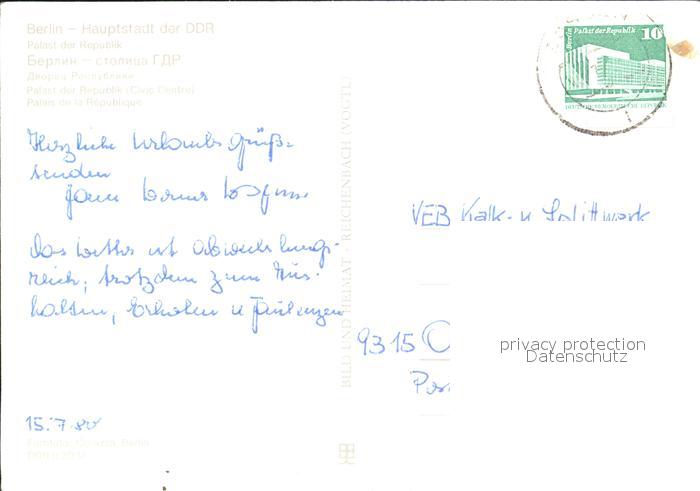 Berlin – Hauptstadt der DDR
Palast der Republik
Берлин – столица ГДР
Дворец Республики
Palast der Republik (Civic Centre)
Palais de la République
Berlin Palast der Republik 10
DEUTSCHE DEMOKRATISCHE REPUBLIK
Herzliche Urlaubsgrüße
senden
Das Wetter ist abwechslungs-
reich, trotzdem zum Aus-
halten, Erholen u Faulenzen
VEB Kalk- u Splittwerk
9315
BILD UND HEIMAT · REICHENBACH (VOGTL)
privacy protection
Datenschutz
15.7.80
Berlin